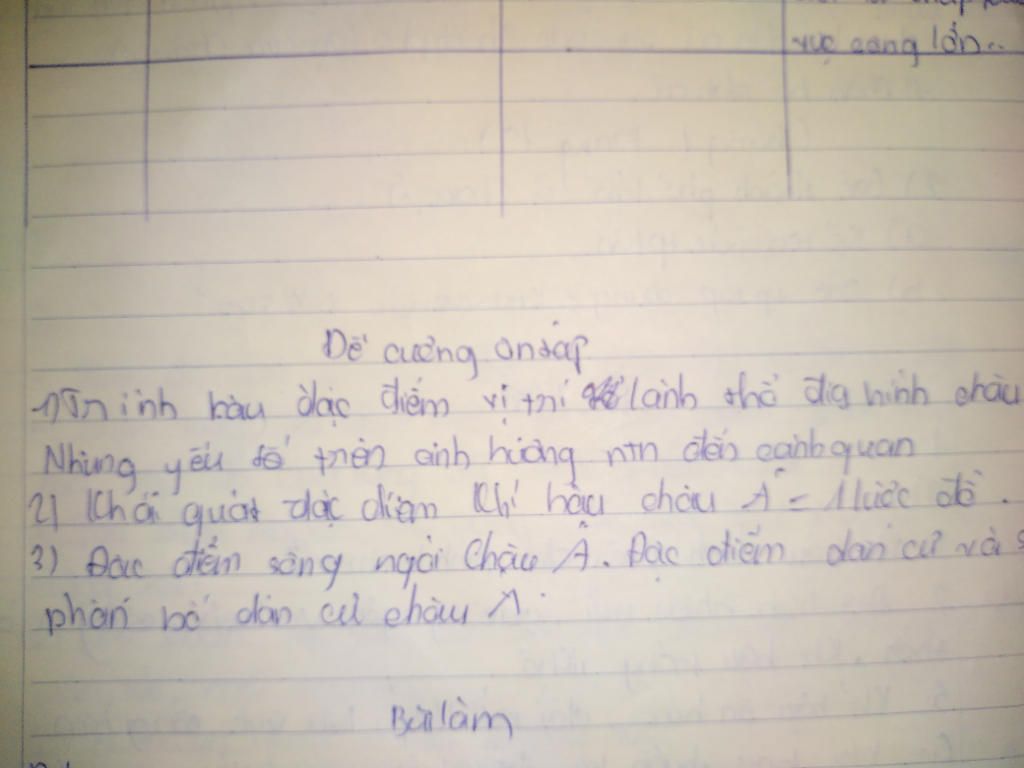 vực càng lớn..
Đề cương ôn tập
1) Trình bày đặc điểm vị trí lãnh thổ địa hình châu
Những yếu tố trên ảnh hưởng ntn đến cảnh quan
2) Khái quát đặc điểm khí hậu châu Á = 1 lược đồ.
3) Đặc điểm sông ngòi Châu Á. Đặc điểm dân cư và s
phân bố dân cư châu Á.
Bài làm